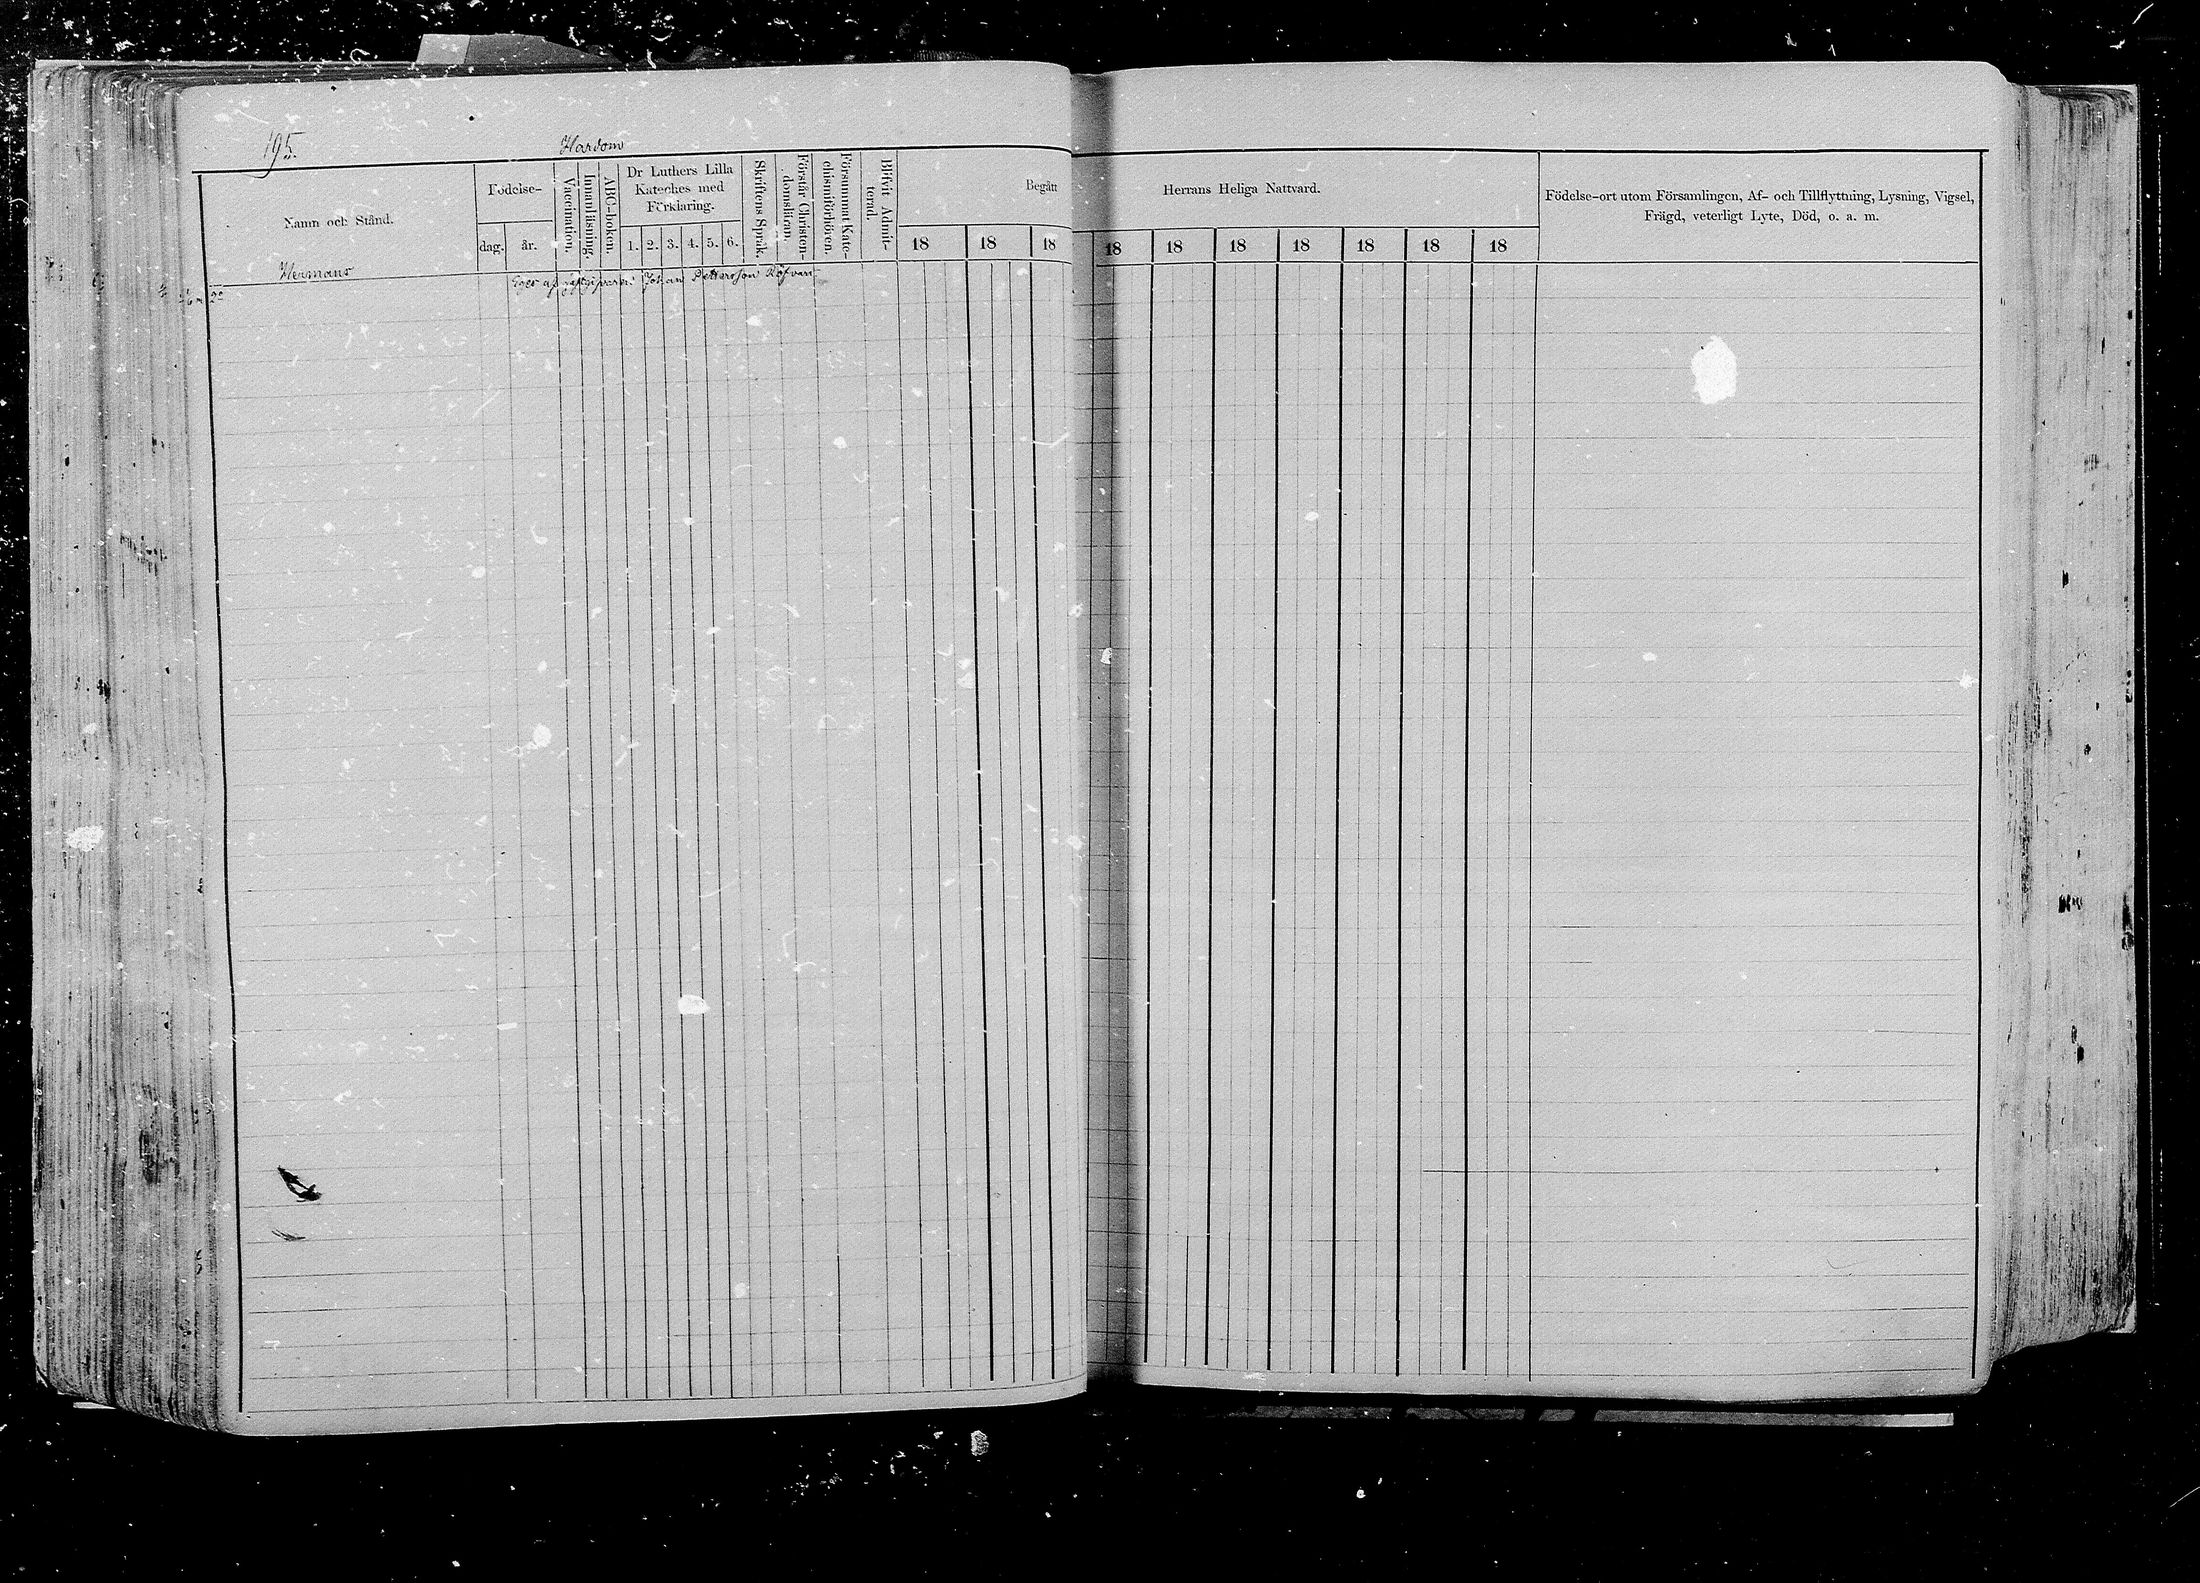 195.
Hardom
Namn och Stånd.
Födelse-
dag.
år.
Vaccination.
Innanläsning.
ABC-boken.
Dr Luthers Lilla
Kateches med
Förklaring.
1. 2. 3. 4. 5. 6.
Skriftens Språk.
Förstår Christen-
domsläran.
Försummat Kate-
chismiförhören.
Blifvit Admit-
terad.
Begått
Herrans Heliga Nattvard.
18 18 18 18 18 18 18 18 18 18
Födelse-ort utom Församlingen, Af- och Tillflyttning, Lysning, Vigsel,
Frägd, veterligt Lyte, Död, o. a. m.
Hermans
Eges af gästgivaren Johan Pettersson Rofvari